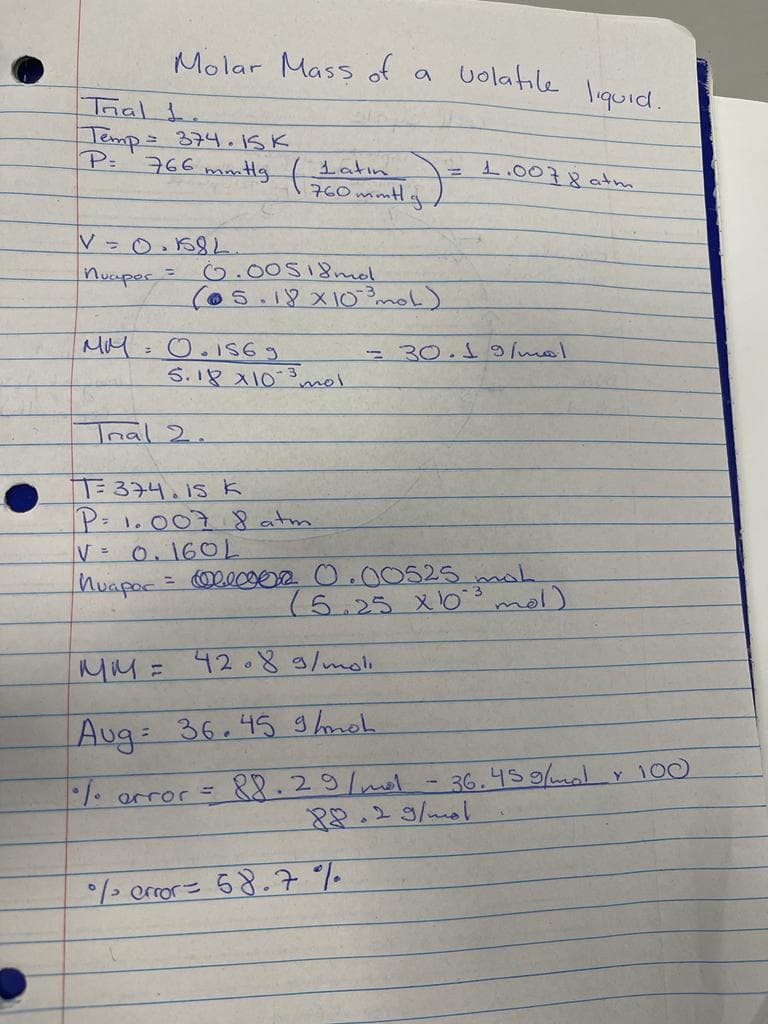 Molar Mass of a volatile liquid.
Trial 1.
Temp = 374.15K
P= 766 mmHg (1 atm / 760 mmHg) = 1.0078 atm
V = 0.158L.
nvapor = 0.00518mol
(5.18 x10⁻³ mol)
MM = 0.156g / 5.18 x10⁻³ mol = 30.1 g/mol
Trial 2.
T= 374.15 K
P= 1.0078 atm
V= 0.160L
nvapor = 0.00525 mol
(5.25 x10⁻³ mol)
MM = 42.8 g/mol
Avg= 36.45 g/mol
% error = 88.2 g/mol - 36.45g/mol x 100
88.2 g/mol
% error= 58.7 %